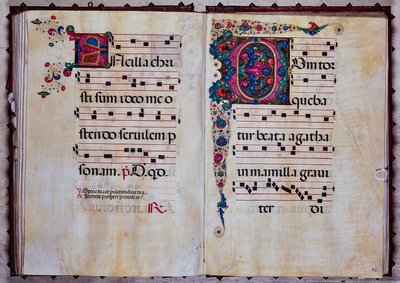 Ancilla chri
sti sum ideo me o
stendo seruilem p
sonam. p. D. qd.
Dum tor
queba
tur beata agatha
in mamilla graui
ter di